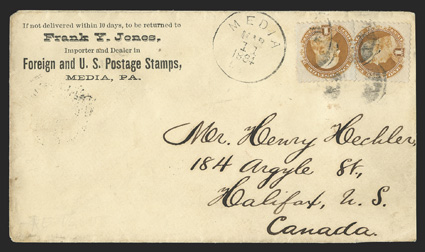 If not delivered within 10 days, to be returned to
Frank Y. Jones,
Importer and Dealer in
Foreign and U. S. Postage Stamps,
MEDIA, PA.
MEDIA
MAR
Mr. Henry Hechler,
184 Argyle St,
Halifax, N. S.
Canada.